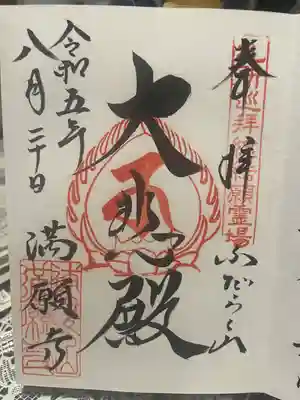 奉拝
ふだらく山
大悲殿
満願寺
令和五年
八月二十日